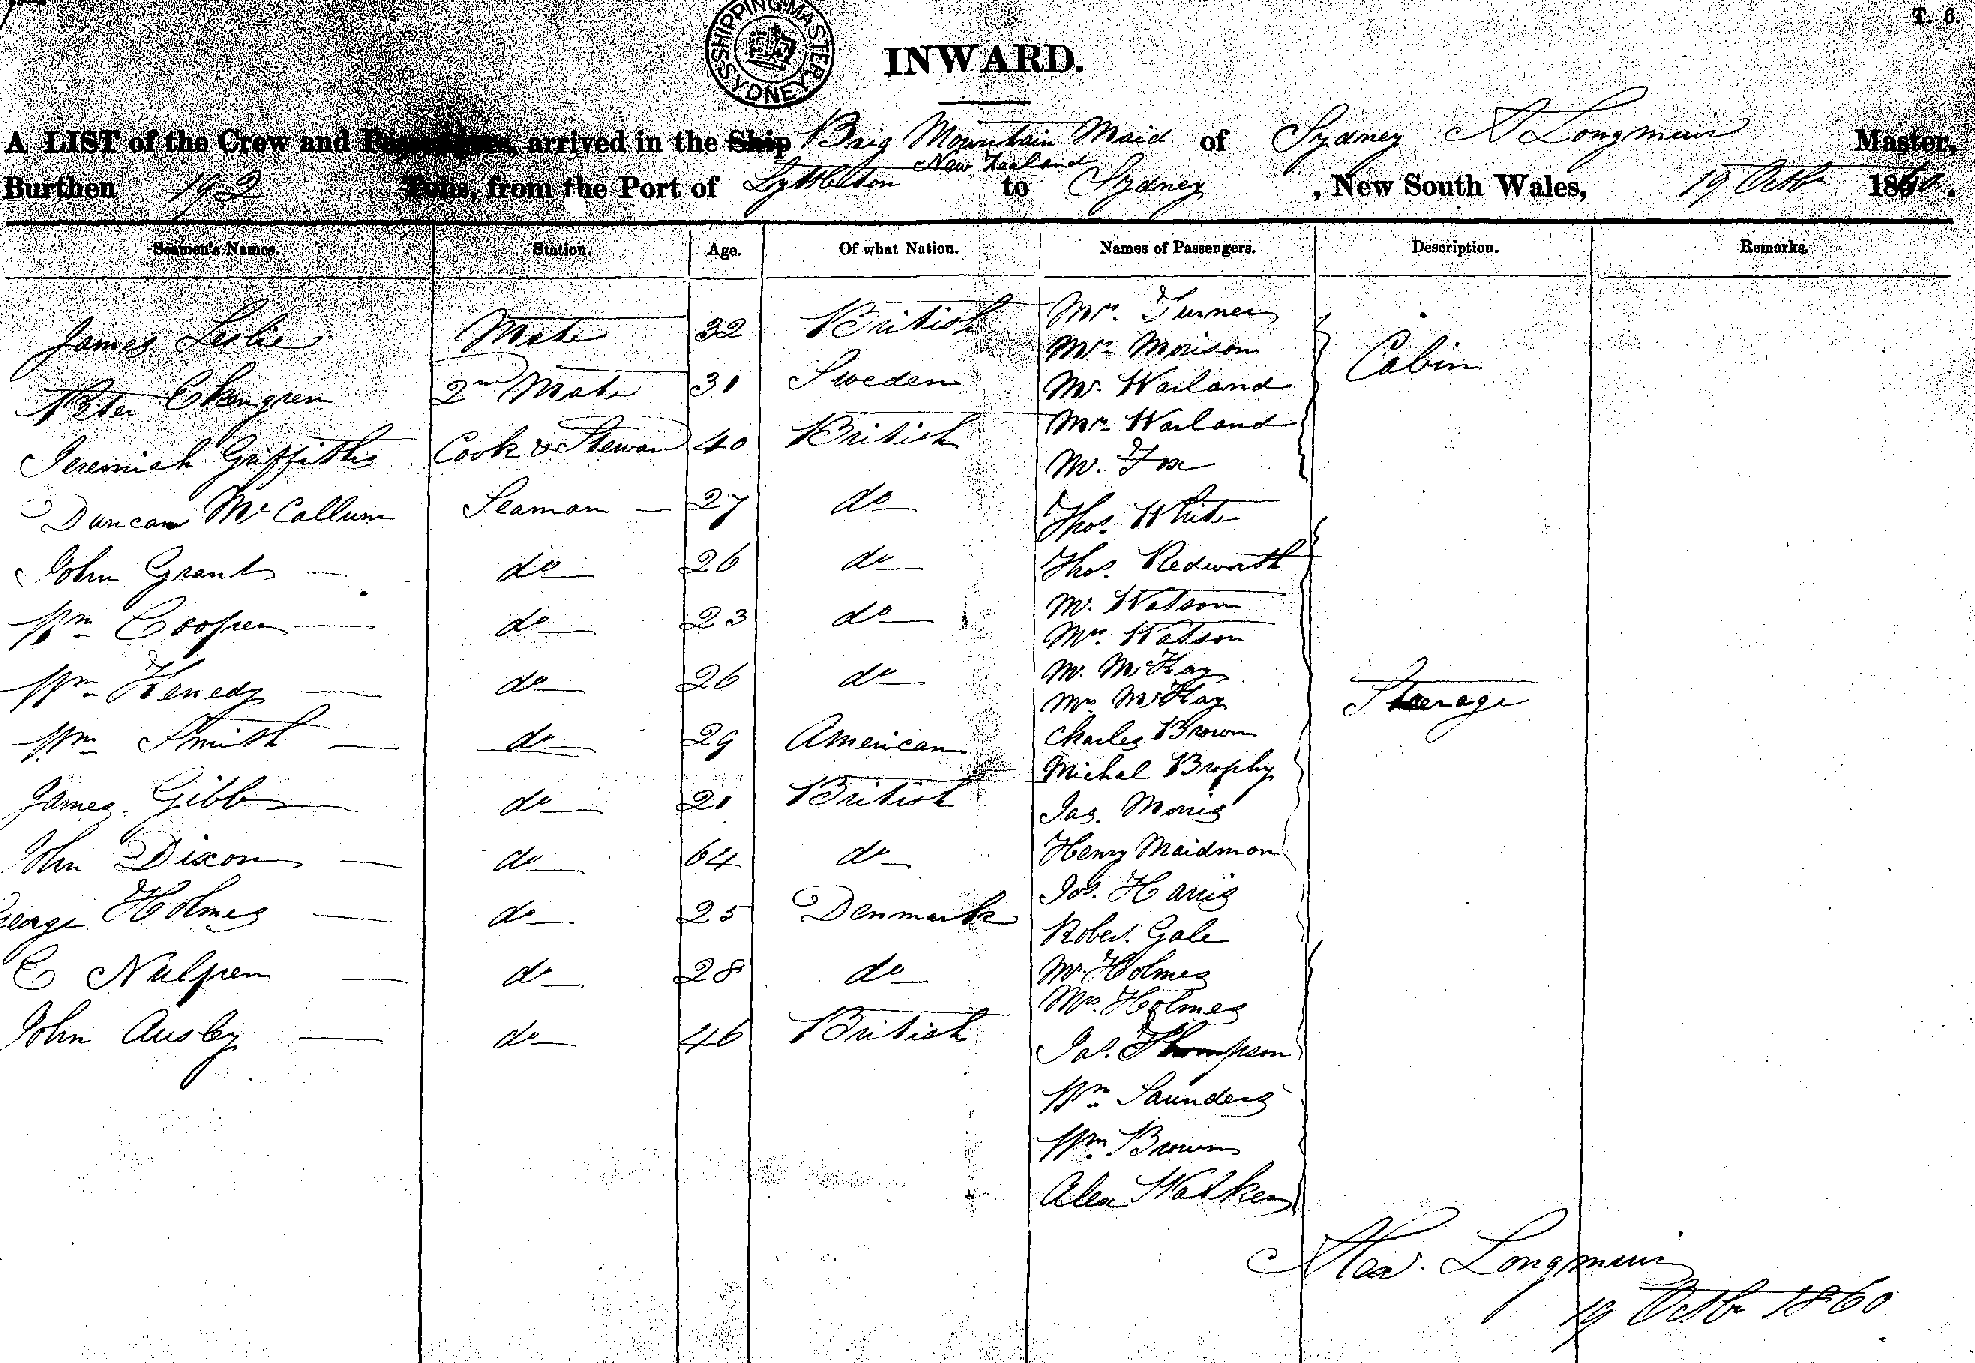 T. 6.
SHIPPING MASTER SYDNEY
INWARD.
A LIST of the Crew and Passengers, arrived in the Ship Brig Mountain Maid of Sydney A Longmuir Master,
Burthen 192 Tons, from the Port of Lyttelton New Zealand to Sydney, New South Wales, 19 Octbr 1860.
Seamen's Names. Station. Age. Of what Nation. Names of Passengers. Description. Remarks.
James Leslie Mate 32 British
Peter Ekengren 2nd Mate 31 Sweden
Jeremiah Griffiths Cook & Steward 40 British
Duncan McCallum Seaman 27 do
John Grant do 26 do
Wm Cooper do 23 do
Wm Kenedy do 26 do
Wm Smith do 29 American
James Gibb do 21 British
John Dixon do 64 do
George Holmes do 25 Denmark
C Nulpen do 28 do
John Ausby do 46 British
Mr. Turner
Mr Morison
Mr. Warland
Mrs Warland
Mr. Fox
Cabin
Thos. White
Thos. Redworth
Mr. Watson
Mrs. Watson
Mr. McKay
Mrs McKay
Charles Brown
Michal Brophy
Jas. Morris
Henry Maidman
Jos. Harris
Robert Gale
Mr Holmes
Mrs. Holmes
Jas. Thompson
Wm Saunders
Wm Brown
Alex Walker
Steerage
Alex. Longmuir
19 Octbr 1860